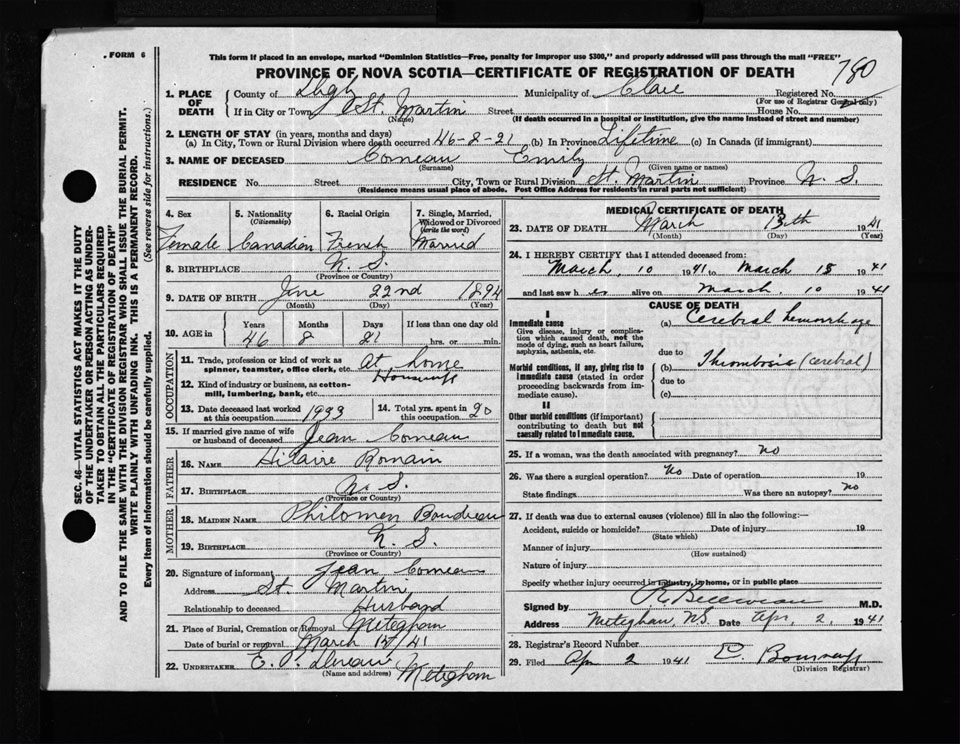 FORM 6
This form if placed in an envelope, marked "Dominion Statistics—Free, penalty for improper use $300," and properly addressed will pass through the mail "FREE"
PROVINCE OF NOVA SCOTIA—CERTIFICATE OF REGISTRATION OF DEATH
780
1. PLACE OF DEATH
County of Digby Municipality of Clare Registered No.
(For use of Registrar General only)
If in City or Town St. Martin Street House No.
(Name) (If death occurred in a hospital or institution, give the name instead of street and number)
2. LENGTH OF STAY (in years, months and days)
(a) In City, Town or Rural Division where death occurred 46-8-21 (b) In Province Lifetime (c) In Canada (if immigrant)
3. NAME OF DECEASED Comeau Emily
(Surname) (Given name or names)
RESIDENCE No. Street City, Town or Rural Division St. Martin Province N. S.
(Residence means usual place of abode. Post Office Address for residents in rural parts not sufficient)
4. Sex
Female
5. Nationality
(Citizenship)
Canadian
6. Racial Origin
French
7. Single, Married, Widowed or Divorced
(write the word)
Married
8. BIRTHPLACE N. S.
(Province or Country)
9. DATE OF BIRTH June 22nd 1894
(Month) (Day) (Year)
10. AGE in Years Months Days If less than one day old
46 8 21 hrs. or min.
OCCUPATION
11. Trade, profession or kind of work as spinner, teamster, office clerk, etc. at home
12. Kind of industry or business, as cotton-mill, lumbering, bank, etc. Housewife
13. Date deceased last worked at this occupation 1933
14. Total yrs. spent in this occupation 20
15. If married give name of wife or husband of deceased Jean Comeau
FATHER
16. NAME Hilaire Romain
17. BIRTHPLACE N. S.
(Province or Country)
MOTHER
18. MAIDEN NAME Philomen Boudreau
19. BIRTHPLACE N. S.
(Province or Country)
20. Signature of informant Jean Comeau
Address St. Martin
Relationship to deceased Husband
21. Place of Burial, Cremation or Removal Meteghan
Date of burial or removal March 15/41
22. UNDERTAKER
(Name and address) Meteghan
MEDICAL CERTIFICATE OF DEATH
23. DATE OF DEATH March 13th 1941
(Month) (Day) (Year)
24. I HEREBY CERTIFY that I attended deceased from:
March 10 1941 to March 13 1941
and last saw her alive on March 10 1941
CAUSE OF DEATH
I
Immediate cause
Give disease, injury or complication which caused death, not the mode of dying, such as heart failure, asphyxia, asthenia, etc.
(a) Cerebral hemorrhage
due to
Morbid conditions, if any, giving rise to immediate cause (stated in order proceeding backwards from immediate cause).
(b) Thrombosis (cerebral)
due to
(c)
II
Other morbid conditions (if important) contributing to death but not causally related to immediate cause.
25. If a woman, was the death associated with pregnancy? no
26. Was there a surgical operation? no Date of operation 19
State findings Was there an autopsy? no
27. If death was due to external causes (violence) fill in also the following:—
Accident, suicide or homicide? Date of injury 19
(State which)
Manner of injury
(How sustained)
Nature of injury
Specify whether injury occurred in industry, in home, or in public place
Signed by M.D.
Address Meteghan, N.S. Date Apr. 2, 1941
28. Registrar's Record Number
29. Filed Apr 2 1941
(Division Registrar)
SEC. 46—VITAL STATISTICS ACT MAKES IT THE DUTY
OF THE UNDERTAKER OR PERSON ACTING AS UNDER-
TAKER TO OBTAIN ALL THE PARTICULARS REQUIRED
IN THE "CERTIFICATE OF REGISTRATION OF DEATH"
AND TO FILE THE SAME WITH THE DIVISION REGISTRAR WHO SHALL ISSUE THE BURIAL PERMIT.
WRITE PLAINLY WITH UNFADING INK. THIS IS A PERMANENT RECORD.
Every item of information should be carefully supplied. (See reverse side for instructions.)